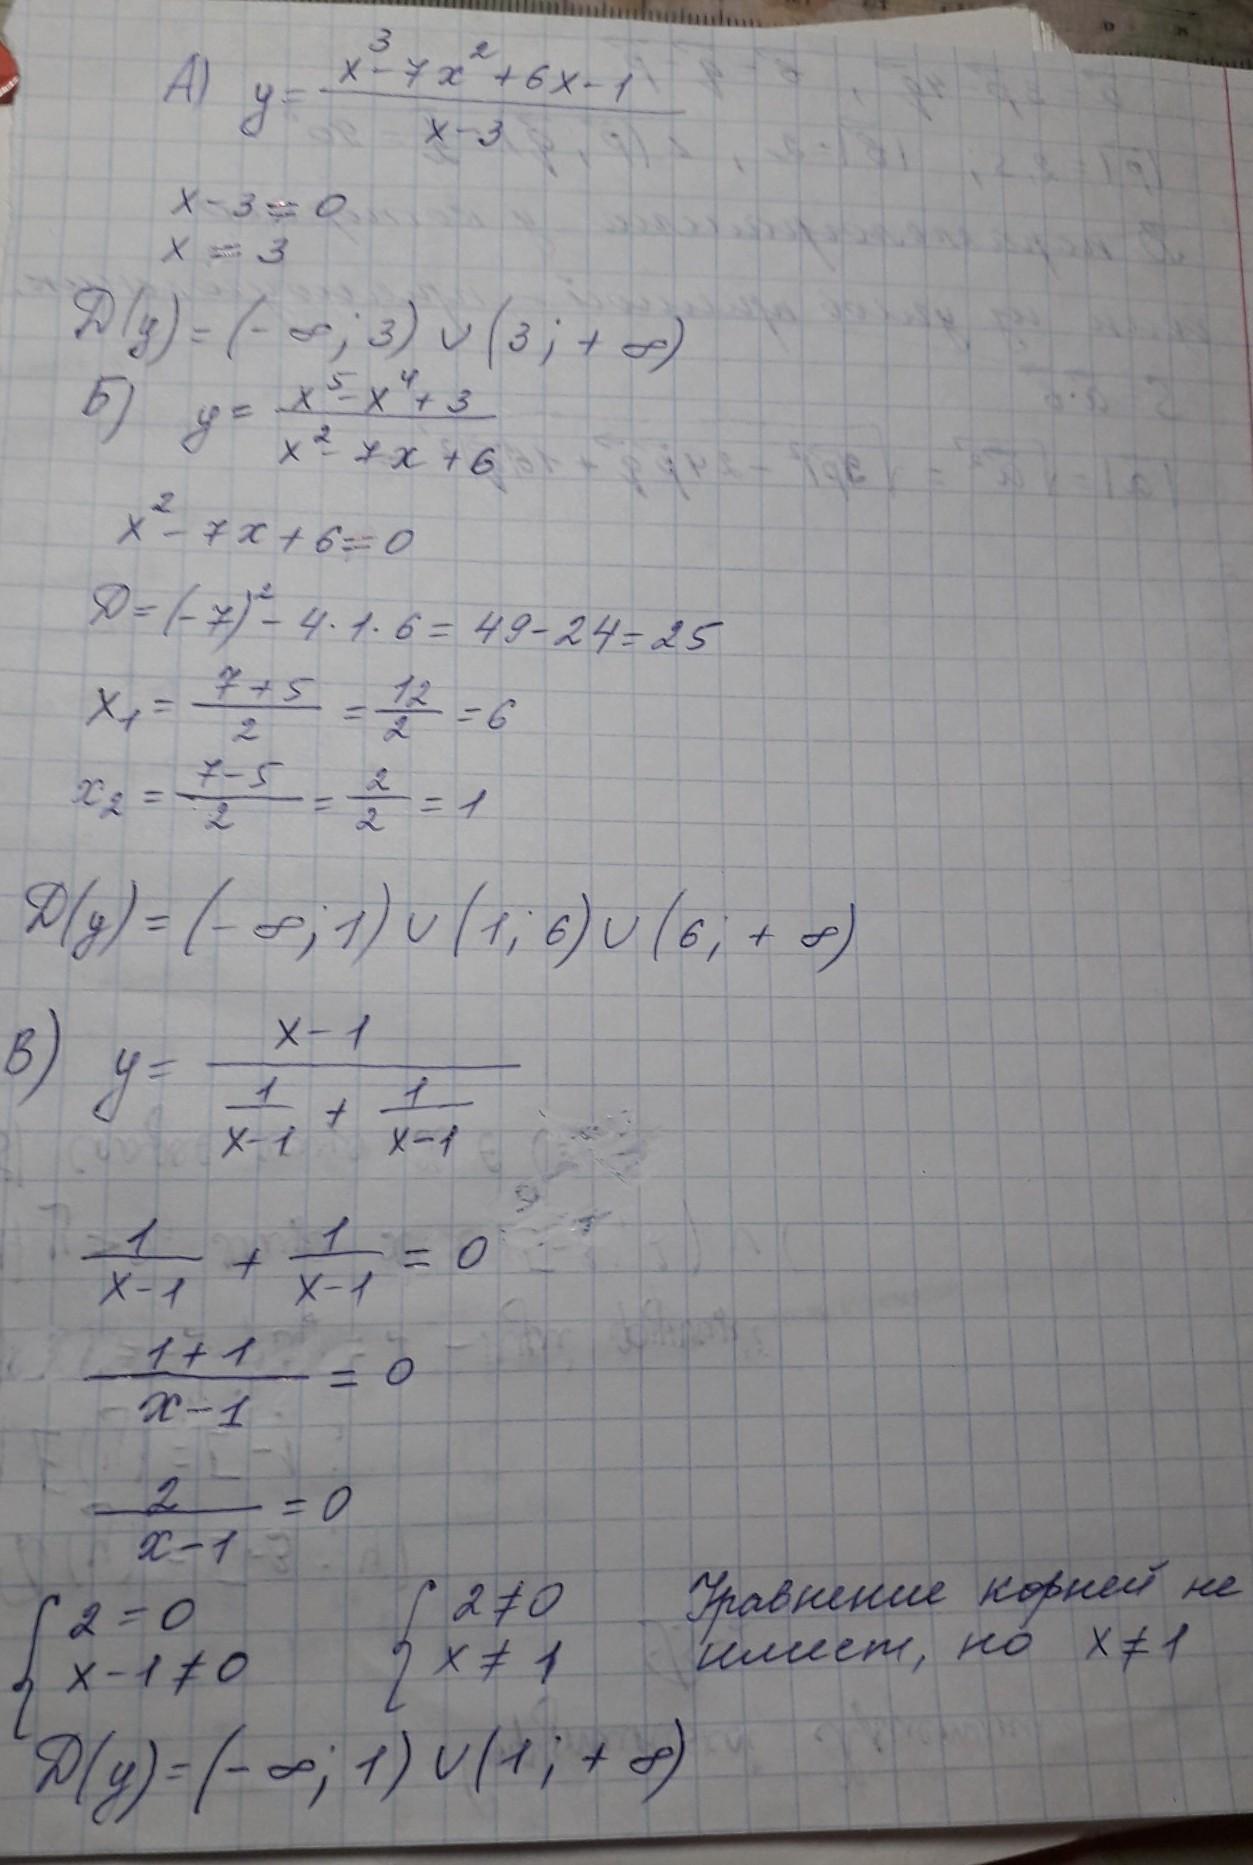 А) y = (x³ - 7x² + 6x - 1)/(x - 3)
x - 3 = 0
x = 3
D(y) = (- ∞; 3) ∪ (3; + ∞)
Б) y = (x⁵ - x⁴ + 3)/(x² - 7x + 6)
x² - 7x + 6 = 0
D = (-7)² - 4·1·6 = 49 - 24 = 25
x₁ = (7 + 5)/2 = 12/2 = 6
x₂ = (7 - 5)/2 = 2/2 = 1
D(y) = (- ∞; 1) ∪ (1; 6) ∪ (6; + ∞)
В) y = (x - 1)/(1/(x-1) + 1/(x-1))
1/(x-1) + 1/(x-1) = 0
(1 + 1)/(x - 1) = 0
2/(x - 1) = 0
{ 2 = 0 { 2 ≠ 0 Уравнение корней не
x - 1 ≠ 0 x ≠ 1 имеет, но x ≠ 1
D(y) = (- ∞; 1) ∪ (1; + ∞)